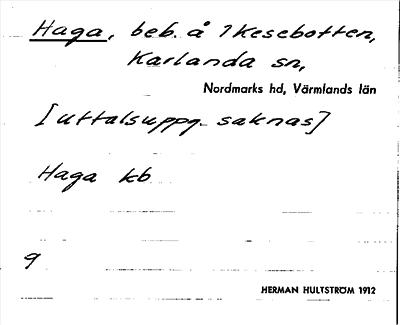 Haga, beb. å 1Kesebotten,
Karlanda sn,
Nordmarks hd, Värmlands län
[uttalsuppg. saknas]
Haga kb
9
HERMAN HULTSTRÖM 1912